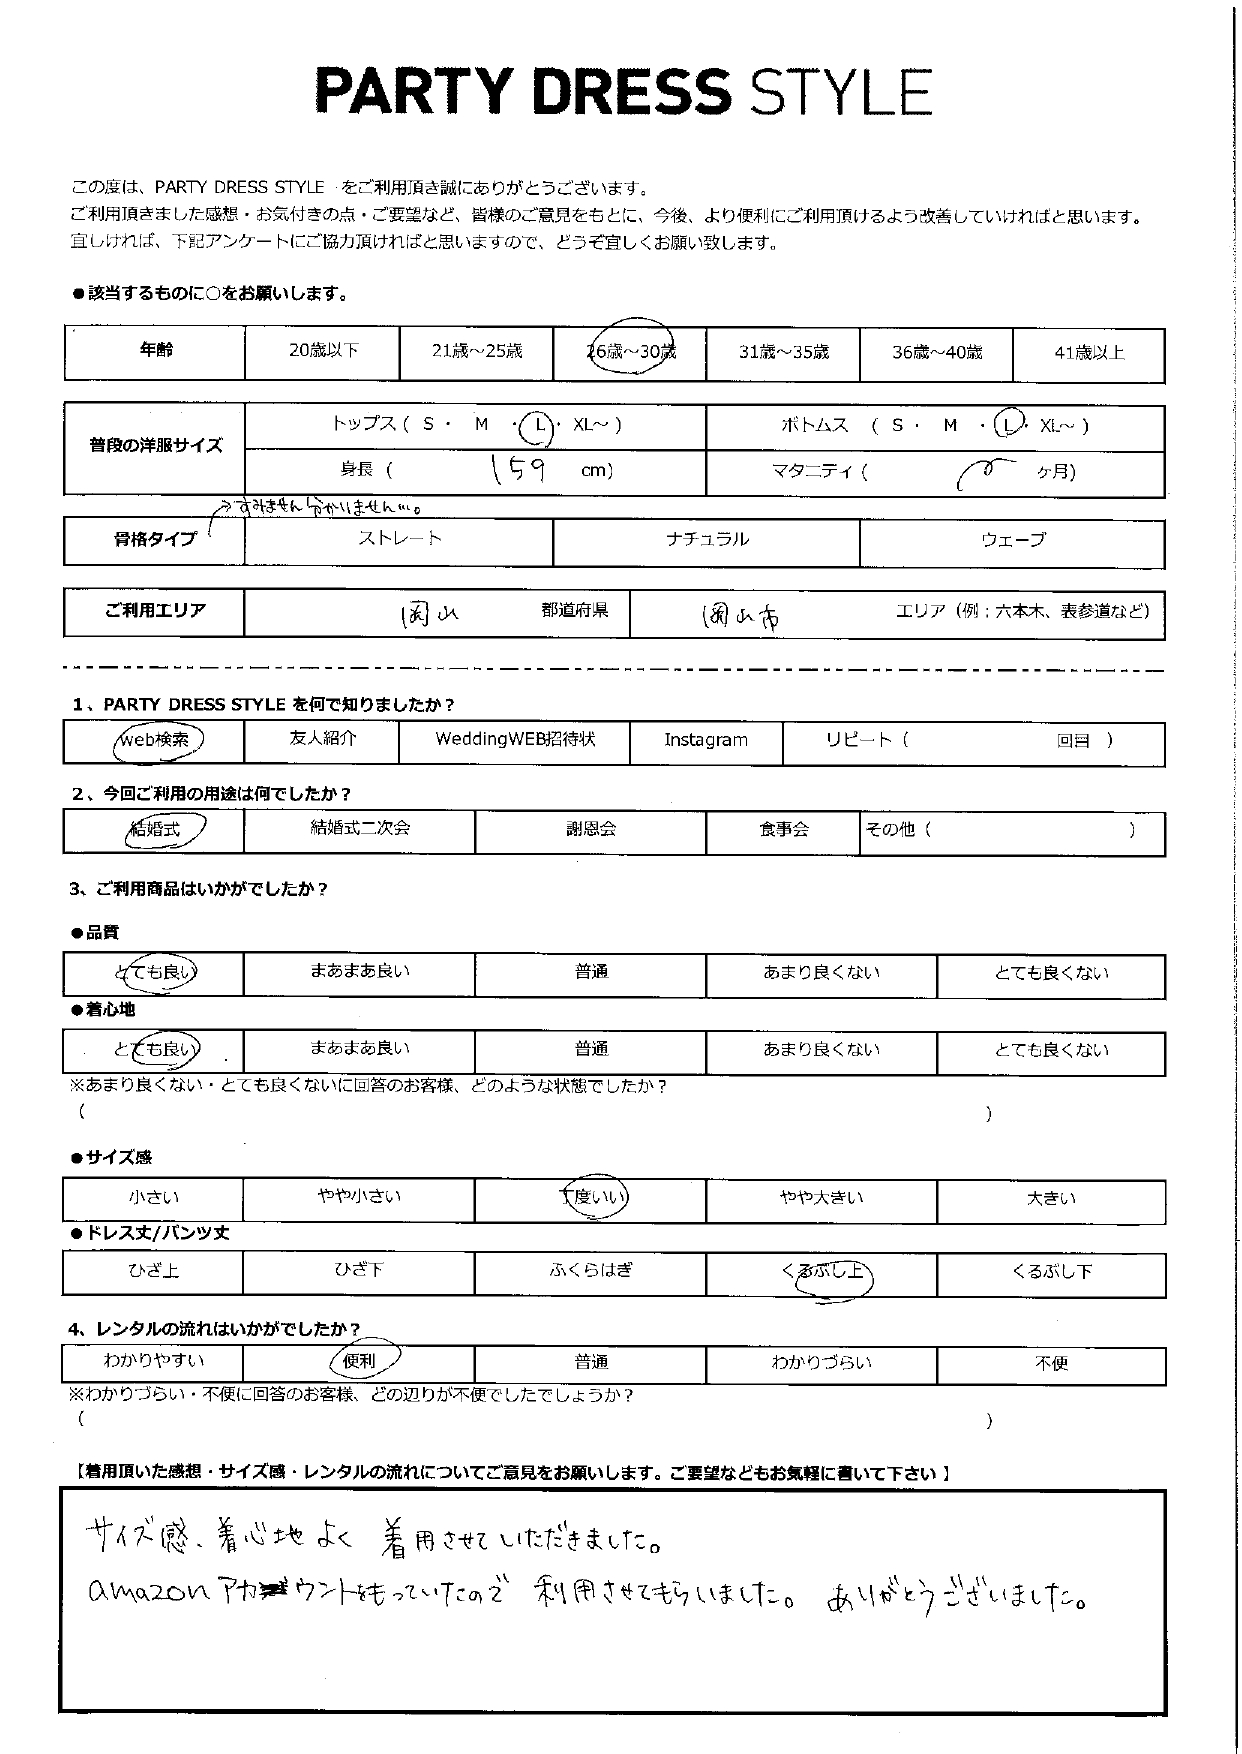 PARTY DRESS STYLE
この度は、PARTY DRESS STYLE をご利用頂き誠にありがとうございます。
ご利用頂きました感想・お気付きの点・ご要望など、皆様のご意見をもとに、今後、より便利にご利用頂けるよう改善していければと思います。
宜しければ、下記アンケートにご協力頂ければと思いますので、どうぞ宜しくお願い致します。
●該当するものに○をお願いします。
年齢 20歳以下 21歳～25歳 26歳～30歳 31歳～35歳 36歳～40歳 41歳以上
普段の洋服サイズ トップス ( S ・ M ・ L ・ XL～ ) ボトムス ( S ・ M ・ L ・ XL～ )
身長 ( 159 cm) マタニティ ( ヶ月)
→すみません分かりません…。
骨格タイプ ストレート ナチュラル ウェーブ
ご利用エリア 岡山 都道府県 岡山市 エリア (例；六本木、表参道など)
1、PARTY DRESS STYLE を何で知りましたか？
web検索 友人紹介 WeddingWEB招待状 Instagram リピート ( 回目 )
2、今回ご利用の用途は何でしたか？
結婚式 結婚式二次会 謝恩会 食事会 その他 ( )
3、ご利用商品はいかがでしたか？
●品質
とても良い まあまあ良い 普通 あまり良くない とても良くない
●着心地
とても良い まあまあ良い 普通 あまり良くない とても良くない
※あまり良くない・とても良くないに回答のお客様、どのような状態でしたか？
( )
●サイズ感
小さい やや小さい 丁度いい やや大きい 大きい
●ドレス丈/パンツ丈
ひざ上 ひざ下 ふくらはぎ くるぶし上 くるぶし下
4、レンタルの流れはいかがでしたか？
わかりやすい 便利 普通 わかりづらい 不便
※わかりづらい・不便に回答のお客様、どの辺りが不便でしたでしょうか？
( )
【着用頂いた感想・サイズ感・レンタルの流れについてご意見をお願いします。ご要望などもお気軽に書いて下さい 】
サイズ感、着心地よく 着用させていただきました。
amazonアカウントをもっていたので 利用させてもらいました。 ありがとうございました。